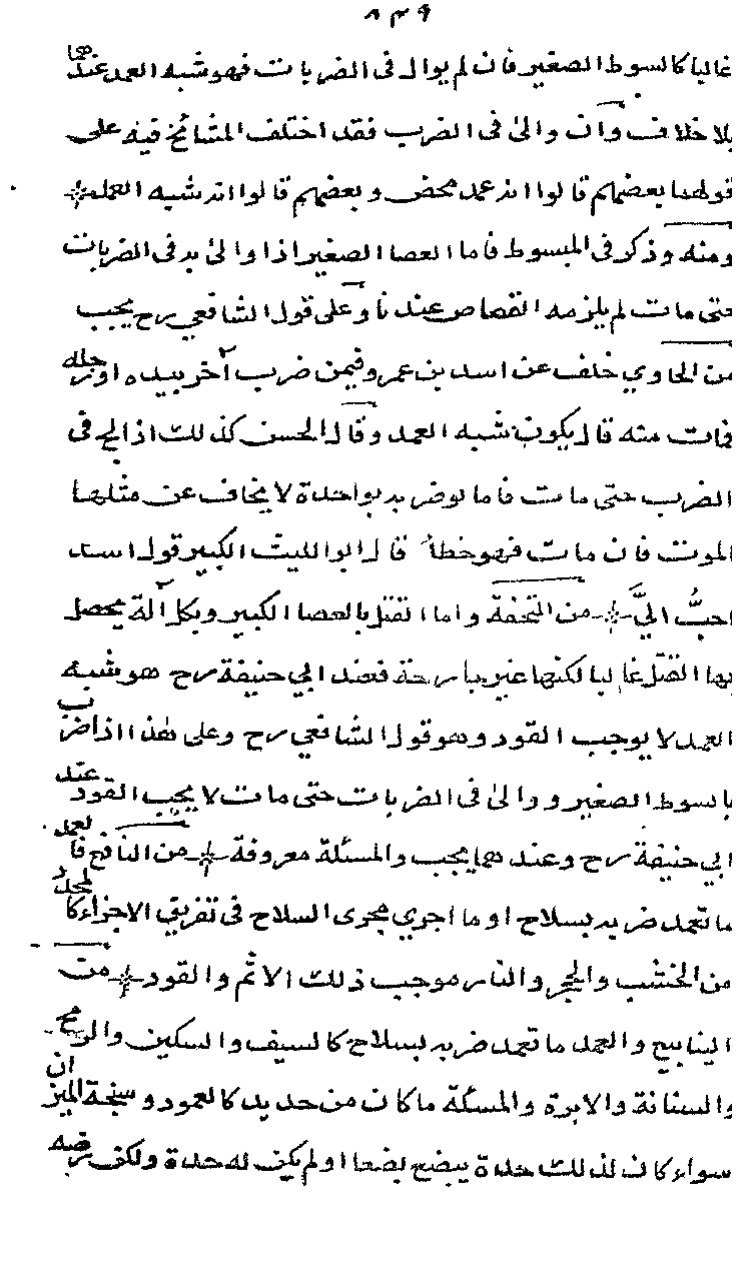 ٨٣٩
غالبا كالسوط الصغير فان لم يوال فى الضربات فهو شبه العمد عندهما
بلا خلاف وان والى فى الضرب فقد اختلف المشائخ فيه على
قولهما بعضهم قالوا انه عمد محض وبعضهم قالوا انه شبه العمد
ومنه وذكر فى المبسوط فاما العصا الصغير اذا والى به فى الضربات
حتى مات لم يلزمه القصاص عندنا وعلى قول الشافعي رح يجب
من الحاوي خلف عن اسد بن عمرو فيمن ضرب آخر بيده او رجله
فمات منه قال يكون شبه العمد وقال الحسن كذلك اذا لج فى
الضرب حتى مات فاما لو ضربه بواحدة لا يخاف عن مثلها
الموت فان مات فهو خطأ قال ابو الليث الكبير قول اسد
احبُّ اليَّ من التحفة واما القتل بالعصا الكبير وبكل آلة يحصل
بها القتل غالبا لكنها غير جارحة فعند ابي حنيفة رح هو شبه
العمد لا يوجب القود وهو قول الشافعي رح وعلى هذا اذا ضرب
بالسوط الصغير ووالى فى الضربات حتى مات لا يجب القود عند
ابي حنيفة رح وعندهما يجب والمسئلة معروفة من النافع فالعمد
ما تعمد ضربه بسلاح او ما اجري مجرى السلاح فى تفريق الاجزاء كالمحدد
من الخشب والحجر والنار موجب ذلك الاثم والقود من
الينابيع والعمد ما تعمد ضربه بسلاح كالسيف والسكين والرمح
والسنانة والابرة والمسلة ما كان من حديد كالعمود وسنجة الميزان
سواء كان لذلك حدة يبضع بضعا او لم يكن له حدة ولكن يرضه